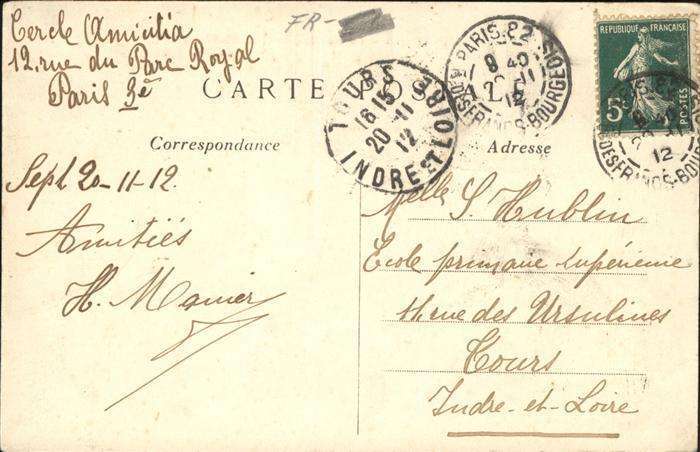 Cercle Amicitia
12, rue du Parc Royal
Paris 3e
FR-
CARTE POSTALE
Correspondance
Adresse
Sept 20-11-12.
Amitiés
H.
Melle S. Hublin
Ecole primaire supérieure
rue des Ursulines
Tours
Indre-et-Loire
TOURS
16 15
20-11
12
INDRE ET LOIRE
PARIS 22
8 45
12
R. DES FRANCS-BOURGEOIS
REPUBLIQUE FRANÇAISE
5c
POSTES
12
DES FRANCS-BOU